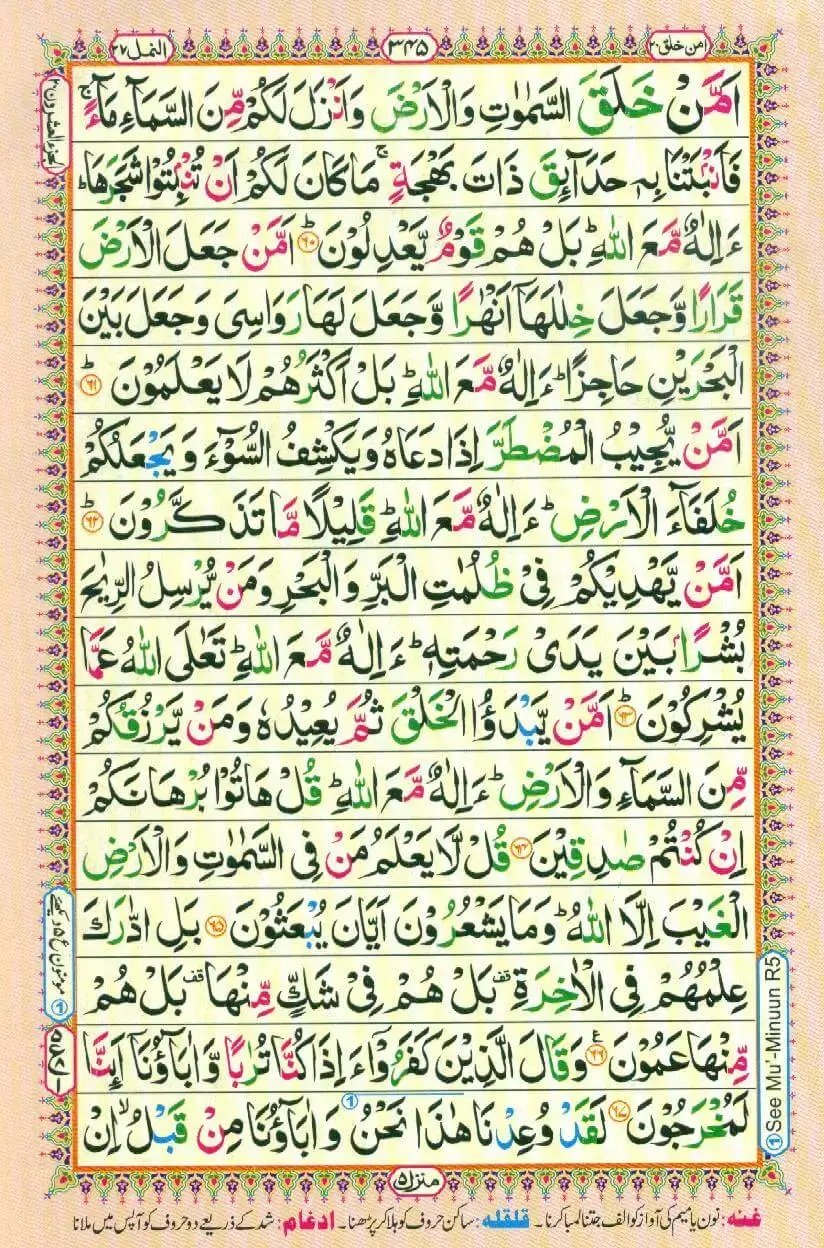 امن خلق ۲۰
۳۴۵
النمل ۲۷
اَمَّنْ خَلَقَ السَّمٰوٰتِ وَالْاَرْضَ وَاَنْزَلَ لَكُمْ مِّنَ السَّمَآءِ مَآءً ۚ
فَاَنْۢبَتْنَا بِهٖ حَدَآئِقَ ذَاتَ بَهْجَةٍ ۚ مَا كَانَ لَكُمْ اَنْ تُنْۢبِتُوْا شَجَرَهَا ؕ
ءَاِلٰهٌ مَّعَ اللّٰهِ ؕ بَلْ هُمْ قَوْمٌ يَّعْدِلُوْنَ ؕ ۶۰ اَمَّنْ جَعَلَ الْاَرْضَ
قَرَارًا وَّجَعَلَ خِلٰلَهَاۤ اَنْهٰرًا وَّجَعَلَ لَهَا رَوَاسِىَ وَجَعَلَ بَيْنَ
الْبَحْرَيْنِ حَاجِزًا ؕ ءَاِلٰهٌ مَّعَ اللّٰهِ ؕ بَلْ اَكْثَرُهُمْ لَا يَعْلَمُوْنَ ؕ ۶۱
اَمَّنْ يُّجِيْبُ الْمُضْطَرَّ اِذَا دَعَاهُ وَيَكْشِفُ السُّوْٓءَ وَيَجْعَلُكُمْ
خُلَفَآءَ الْاَرْضِ ؕ ءَاِلٰهٌ مَّعَ اللّٰهِ ؕ قَلِيْلًا مَّا تَذَكَّرُوْنَ ؕ ۶۲
اَمَّنْ يَّهْدِيْكُمْ فِىْ ظُلُمٰتِ الْبَرِّ وَالْبَحْرِ وَمَنْ يُّرْسِلُ الرِّيٰحَ
بُشْرًۢا بَيْنَ يَدَىْ رَحْمَتِهٖ ؕ ءَاِلٰهٌ مَّعَ اللّٰهِ ؕ تَعٰلَى اللّٰهُ عَمَّا
يُشْرِكُوْنَ ؕ ۶۳ اَمَّنْ يَّبْدَؤُا الْخَلْقَ ثُمَّ يُعِيْدُهٗ وَمَنْ يَّرْزُقُكُمْ
مِّنَ السَّمَآءِ وَالْاَرْضِ ؕ ءَاِلٰهٌ مَّعَ اللّٰهِ ؕ قُلْ هَاتُوْا بُرْهَانَكُمْ
اِنْ كُنْتُمْ صٰدِقِيْنَ ۶۴ قُلْ لَّا يَعْلَمُ مَنْ فِى السَّمٰوٰتِ وَالْاَرْضِ
الْغَيْبَ اِلَّا اللّٰهُ ؕ وَمَا يَشْعُرُوْنَ اَيَّانَ يُبْعَثُوْنَ ۶۵ بَلِ ادّٰرَكَ
عِلْمُهُمْ فِى الْاٰخِرَةِ قف بَلْ هُمْ فِىْ شَكٍّ مِّنْهَا قف بَلْ هُمْ
مِّنْهَا عَمُوْنَ ۶۶ ع وَقَالَ الَّذِيْنَ كَفَرُوْۤا ءَاِذَا كُنَّا تُرٰبًا وَّاٰبَآؤُنَاۤ اَئِنَّا
لَمُخْرَجُوْنَ ۶۷ لَقَدْ وُعِدْنَا هٰذَا نَحْنُ وَاٰبَآؤُنَا مِنْ قَبْلُ ۙ اِنْ
الجزء العشرون ۲۰
1 See Mu'-Minuun R5
منزل ۵
غنه: نون یا میم کی آواز کو الف جتنا لمبا کرنا۔ قلقله: ساکن حروف کو ہلا کر پڑھنا۔ ادغام: شد کے ذریعے دو حروف کو آپس میں ملانا